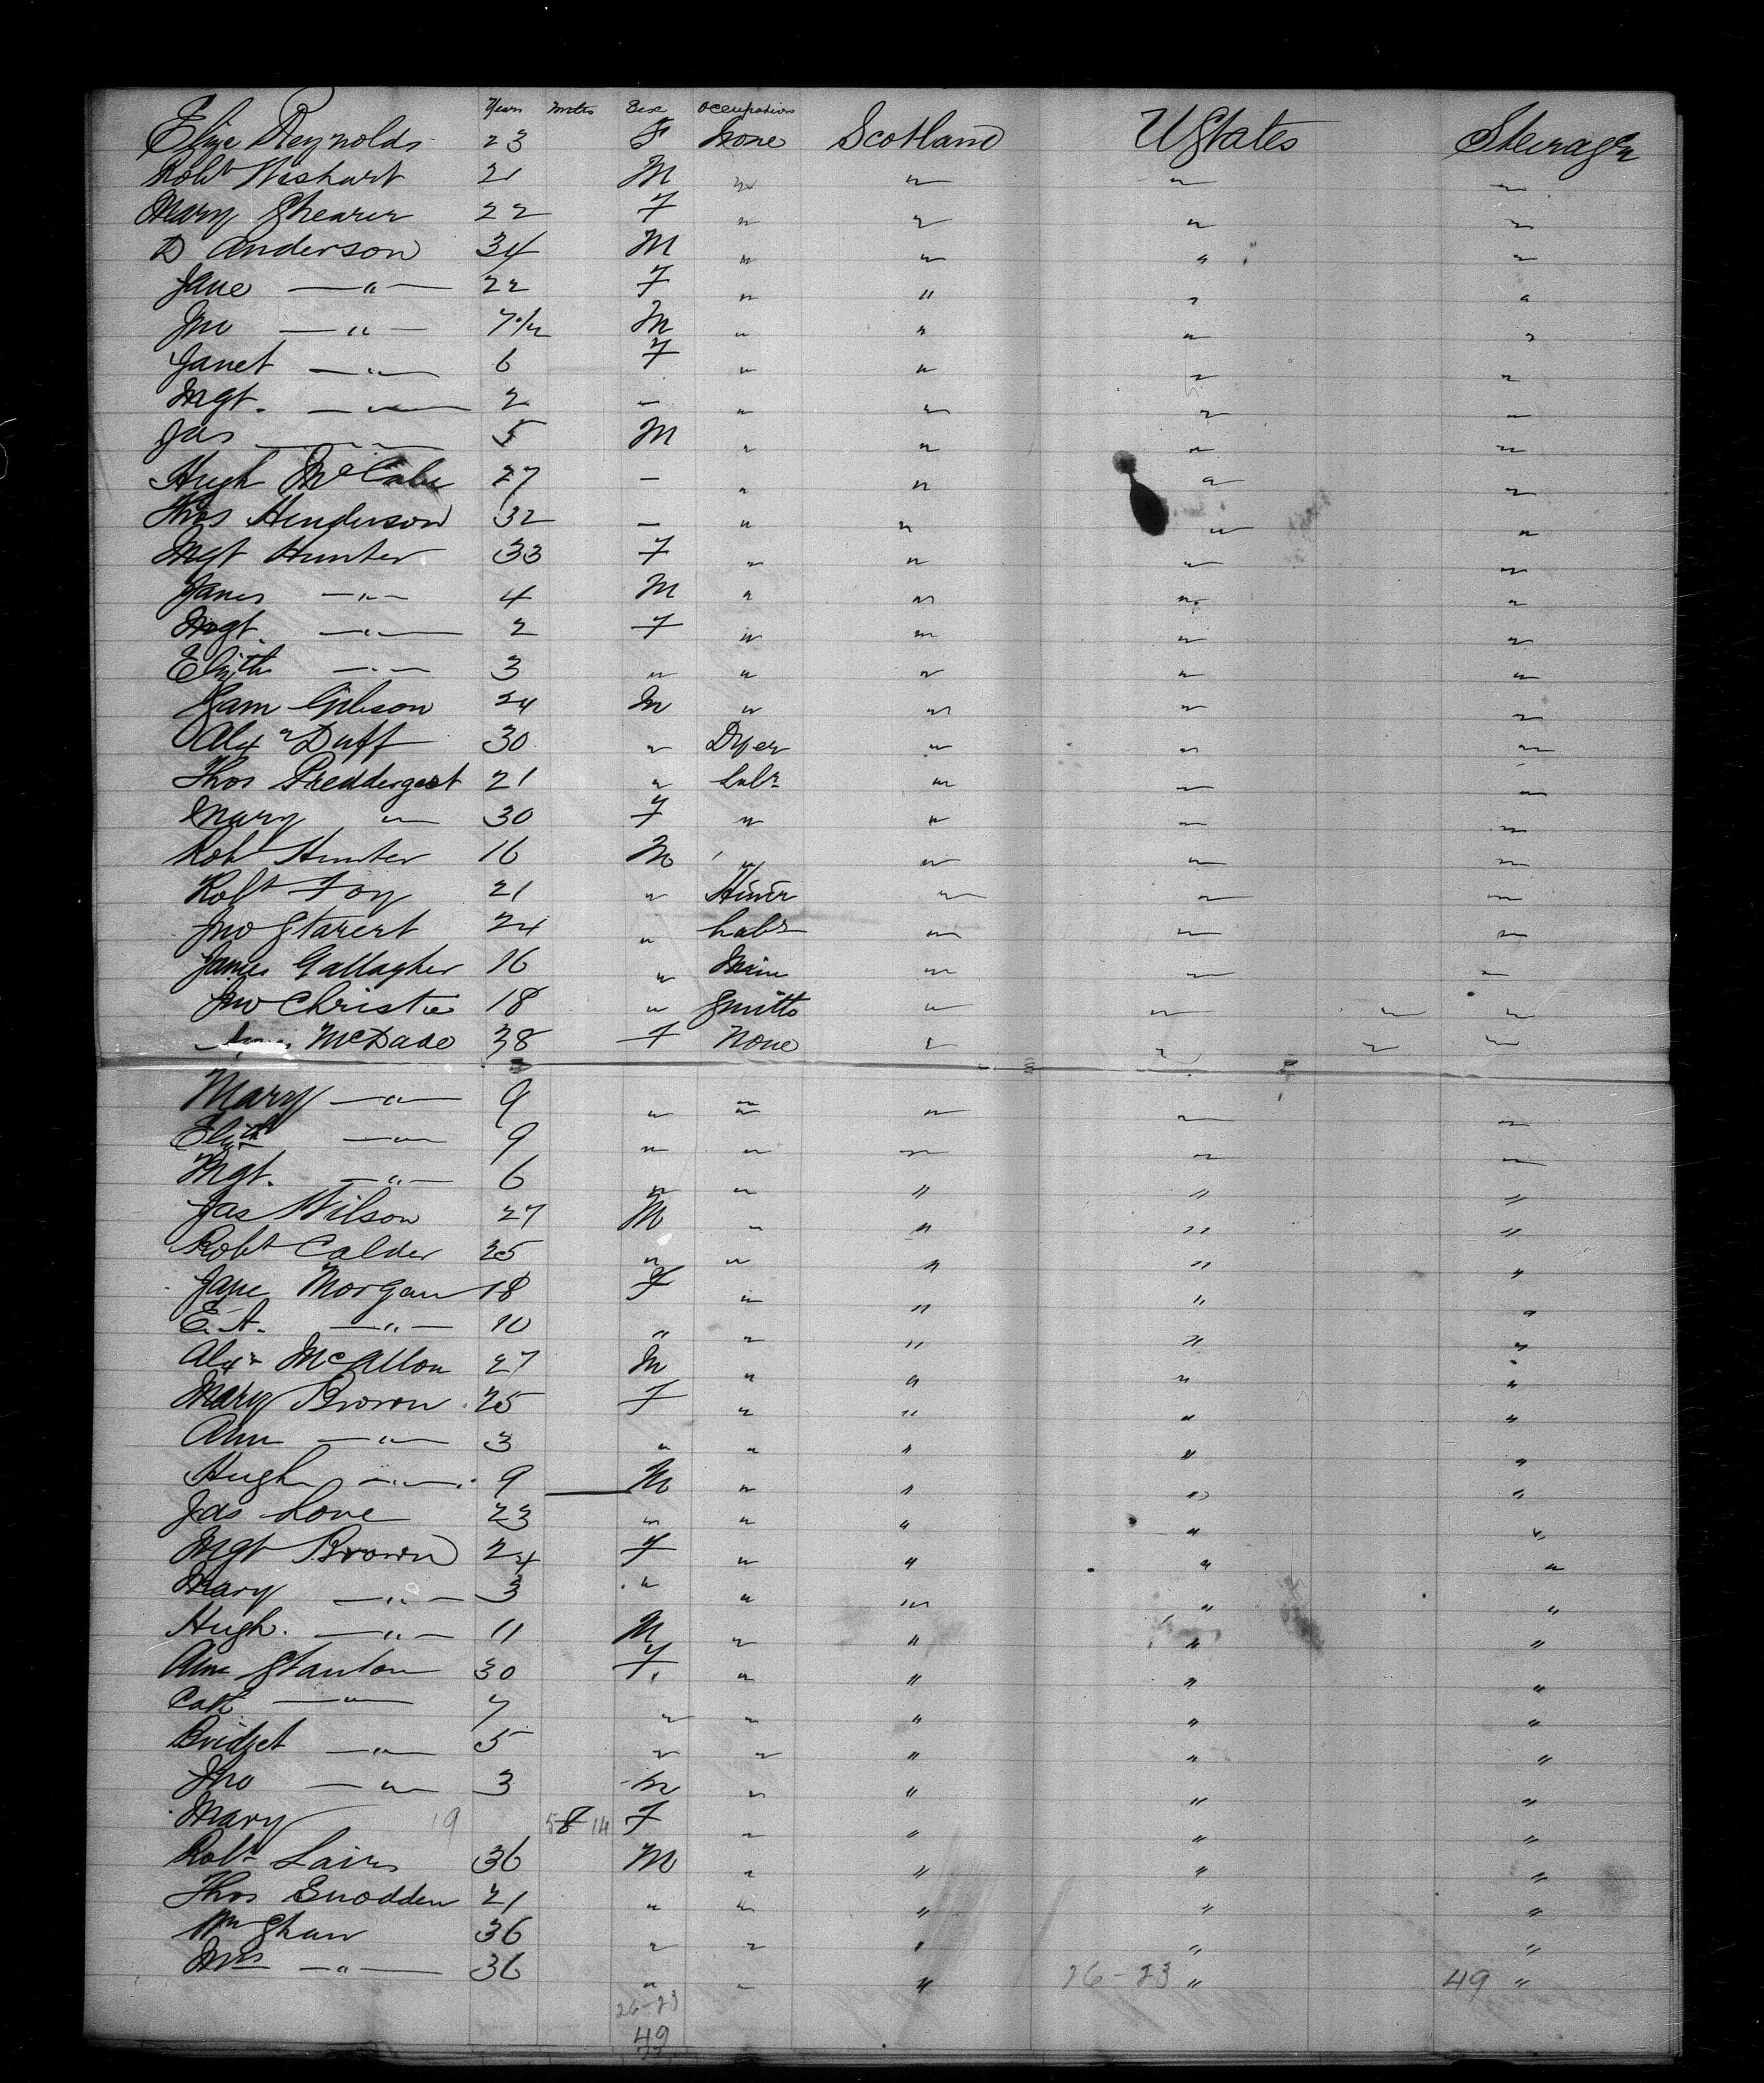 Years Mnths Sex Occupation
Eliza Reynolds 23 F None Scotland U States Steerage
Robt Wishart 21 M " " " "
Mary Shearer 22 F " " " "
D Anderson 34 M " " " "
Jane — " — 22 F " " " "
Jno — " — 7 M " " " "
Janet — " — 6 F " " " "
Mgt. — " — 2 — " " " "
Jas — " — 5 M " " " "
Hugh McCabe 27 — " " " "
Thos Henderson 32 — " " " "
Mgt Hunter 33 F " " " "
James — " — 4 M " " " "
Mgt. — " — 2 F " " " "
Elizth — " — 3 " " " " "
Sam Gibson 24 M " " " "
Alexr Duff 30 " Dyer " " "
Thos Preddergast 21 " Labr " " "
Mary " 30 F " " " "
Robt Hunter 16 M " " " "
Robt Foy 21 " " " "
Jno Starert 24 " Labr " " "
James Gallagher 16 " " " "
Jno Christie 18 " Smith " " " "
McDade 38 F None " " " "
Mary — " — 9 " " " " "
Elizth — " — 9 " " " " "
Mgt. — " — 6 " " " " "
Jas Wilson 27 M " " " "
Robt Calder 25 " " " " "
Jane Morgan 18 F " " " "
E. A. — " — 10 " " " " "
Alexr McAllon 27 M " " " "
Mary Brown 25 F " " " "
Ann — " — 3 " " " " "
Hugh — " — 9 M " " " "
Jas Love 23 " " " " "
Mgt Brown 24 F " " " "
Mary — " — 3 " " " " "
Hugh. — " — 11 M " " " "
Ann Stanton 30 F " " " "
Cath — " — 7 " " " " "
Bridget — " — 5 " " " " "
Jno — " — 3 M " " " "
Mary 19 58 14 F " " " "
Robt Laird 36 M " " " "
Thos Snodden 21 " " " " "
Wm Shaw 36 " " " " "
Mrs — " — 36 " " " 26-23 " 49 "
26-23
49